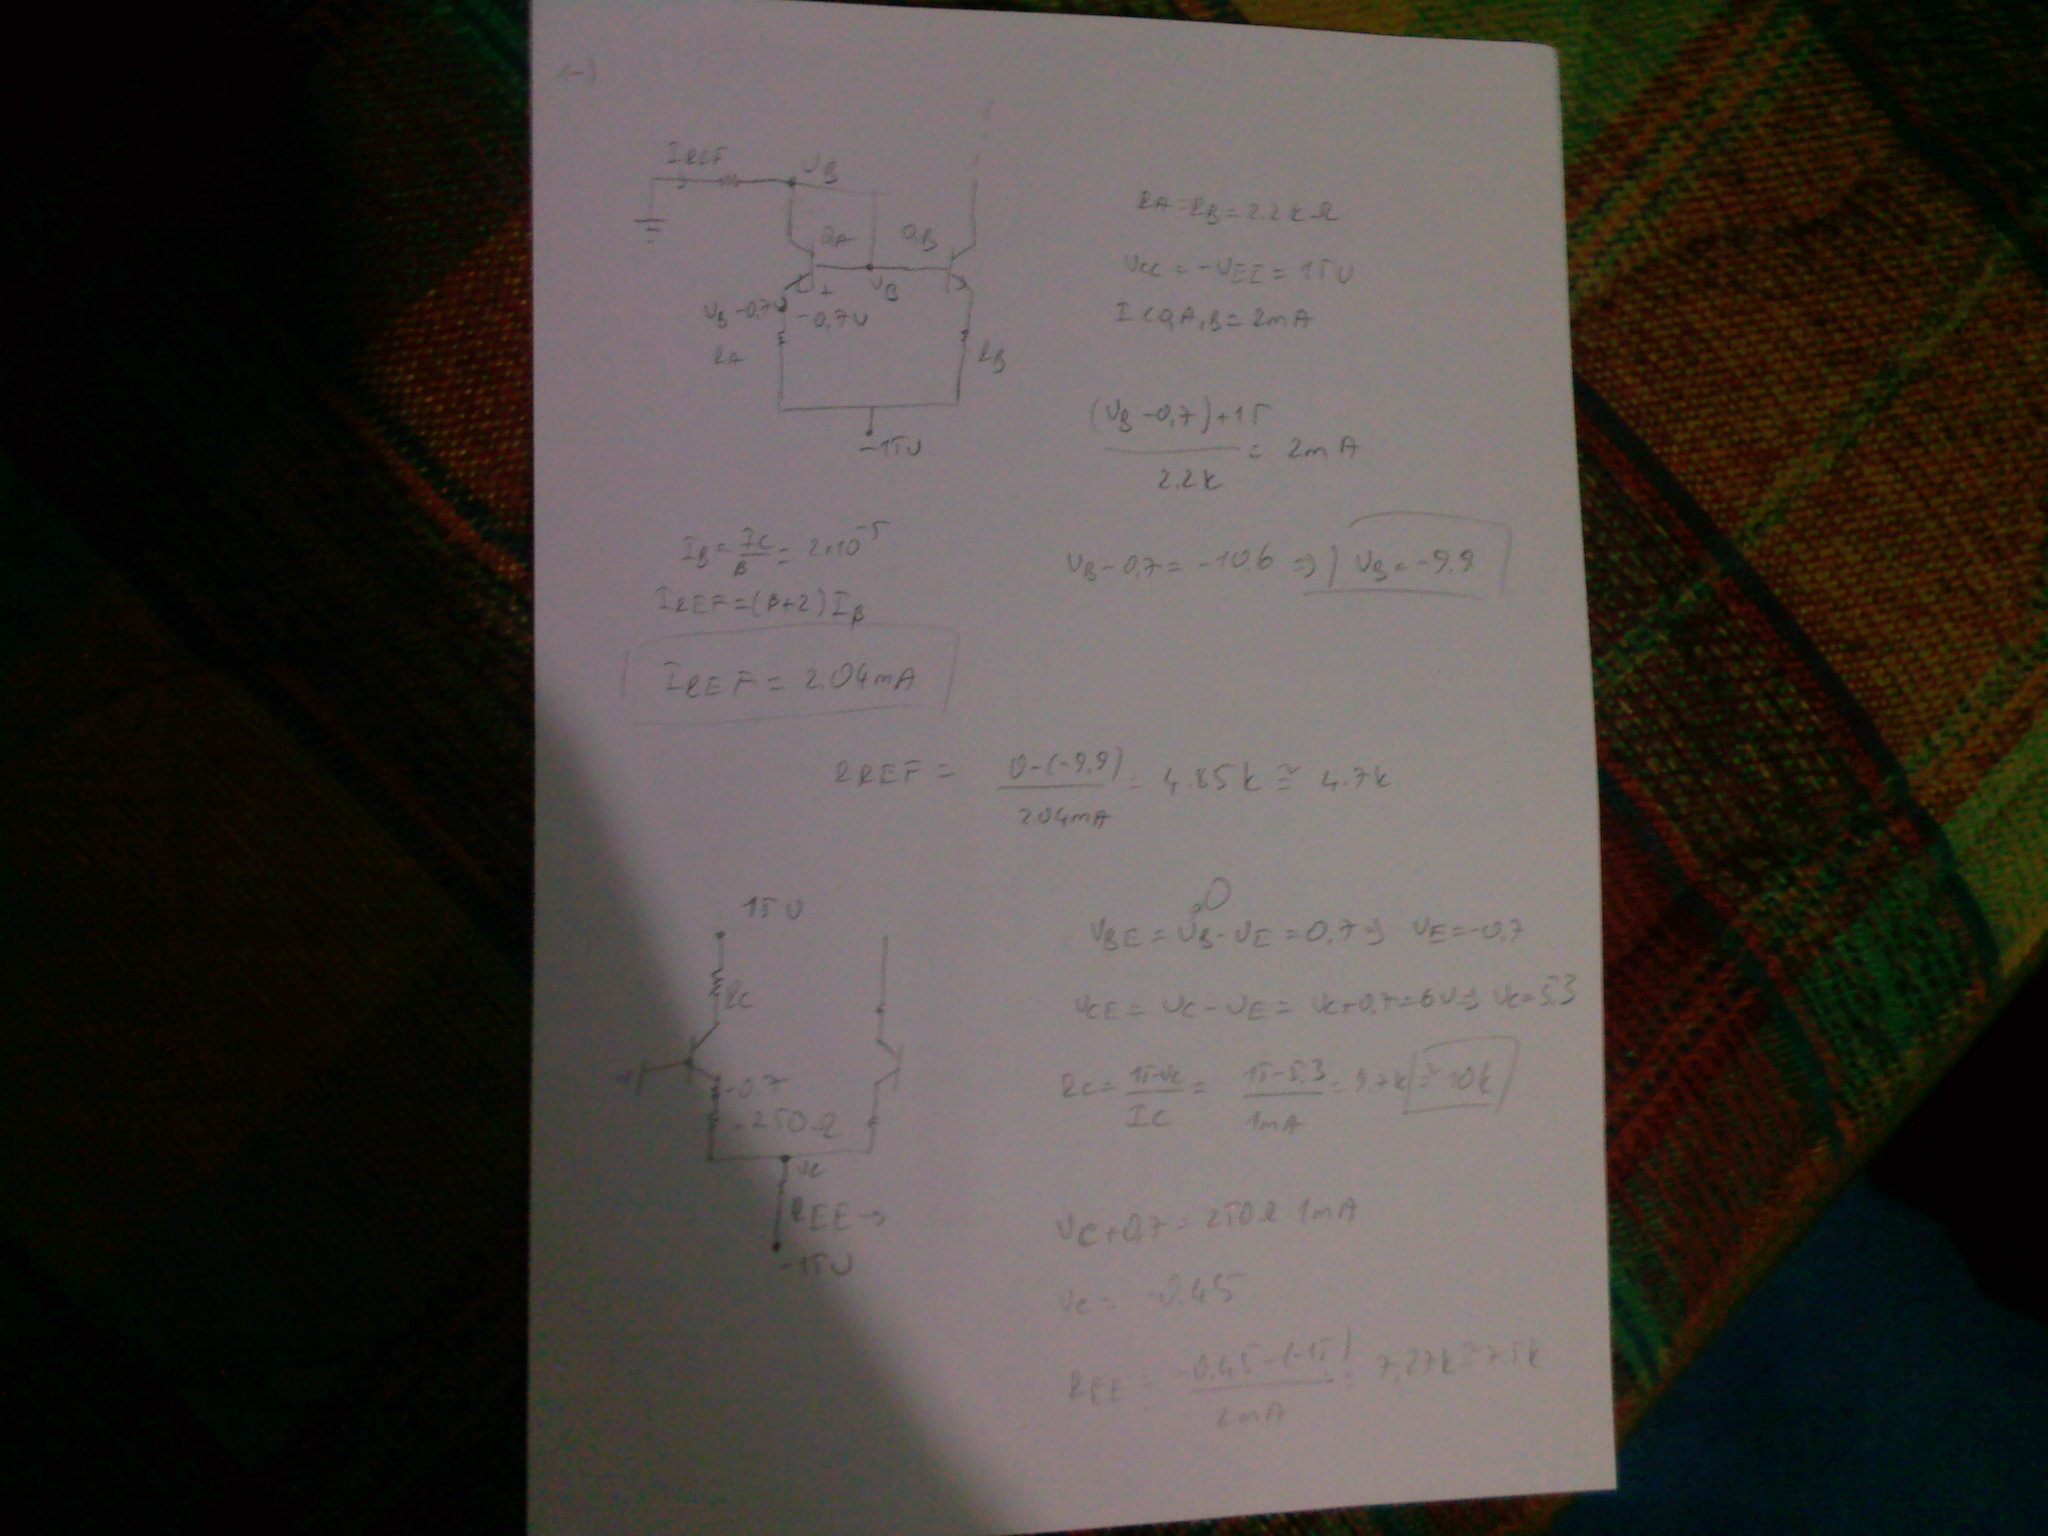 1-)
IREF
VB
QA
QB
VB
+
VB-0,7V
-0,7V
RA
RB
-15V
RA=RB=2.2kΩ
VCC=-VEE=15V
ICQA,B=2mA
(VB-0,7)+15
2.2k
= 2mA
IB=IC/β=2x10^-5
VB-0,7=-10.6 => VB=-9.9
IREF=(β+2)IB
IREF=2.04mA
RREF = 0-(-9.9)/2.04mA = 4.85k ≅ 4.7k
15V
RC
-0.7
250Ω
VC
REE →
-15V
0
VBE=VB-VE=0,7 => VE=-0,7
VCE=VC-VE=VC+0,7=6V => VC=5.3
RC=15-VC/IC=15-5.3/1mA=9.7k≅10k
VC+0,7=250Ω 1mA
VC=-0.45
REE=-0.45-(-15)/2mA=7.27k≅7.5k